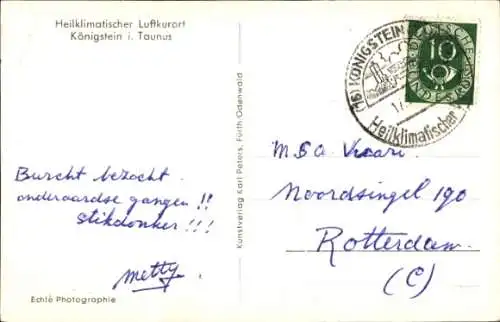 Heilklimatischer Luftkurort
Königstein i. Taunus
(16) KÖNIGSTEIN
Heilklimatischer
DEUTSCHE BUNDESPOST
10
Burcht bezocht.
onderaardse gangen!!
stikdonker!!!
Metty.
Echte Photographie
Kunstverlag Karl Peters, Fürth Odenwald
Noordsingel 190
Rotterdam.
(C)